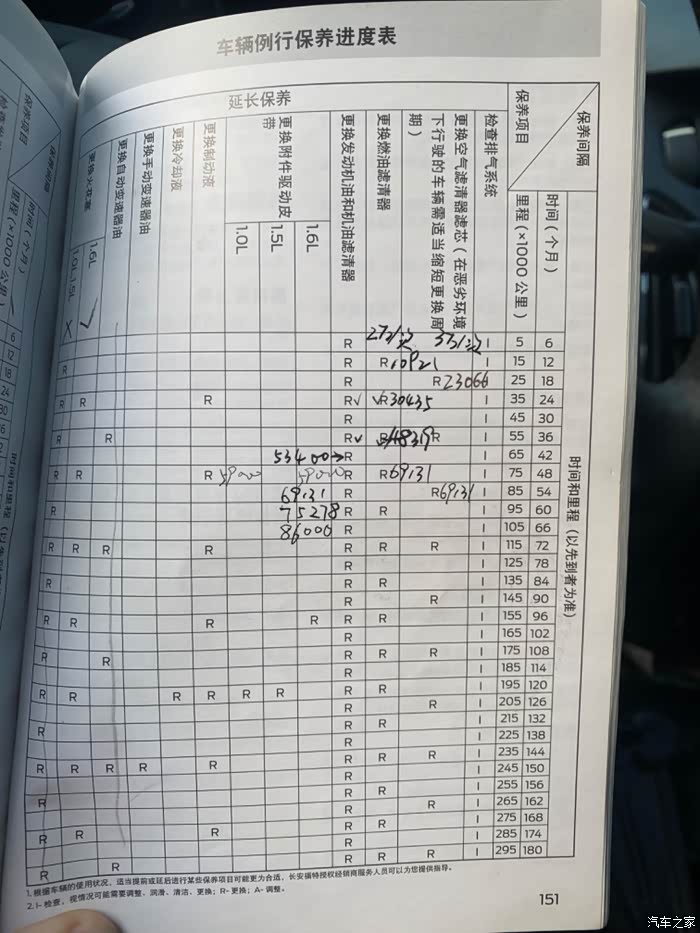 车辆例行保养进度表
保养间隔
时间和里程（以先到者为准）
时间（个月）
保养项目
里程（×1000 公里）
延长保养
检查排气系统
更换空气滤清器滤芯（在恶劣环境
下行驶的车辆需适当缩短更换周
期）
更换燃油滤清器
更换发动机油和机油滤清器
更换附件驱动皮
带
1.6L
1.5L
1.0L
更换制动液
更换冷却液
更换手动变速器油
更换自动变速器油
更换火花塞
1.6L
1.0L,1.5L
R I 5 6
R R R 10921 I 15 12
R R 23066 I 25 18
R R R R✓ ✓R30435 I 35 24
R I 45 30
R R R✓ R48319 R I 55 36
53400→R I 65 42
R R R 59000 59000 R R69131 I 75 48
69131 R R69131 I 85 54
R 75278 R R I 95 60
86000 R I 105 66
R R R R R R R I 115 72
R I 125 78
R R R I 135 84
R R I 145 90
R R R R R R I 155 96
R I 165 102
R R R R R I 175 108
R I 185 114
R R R R R R R R I 195 120
R R I 205 126
R R R I 215 132
R I 225 138
R R R R R R R R I 235 144
R I 245 150
R R R I 255 156
R R I 265 162
R R R R R I 275 168
R I 285 174
R R R R R I 295 180
1. 根据车辆的使用状况，适当提前或延后进行某些保养项目可能更为合适，长安福特授权经销商服务人员可以为您提供指导。
2. I- 检查，视情况可能需要调整、润滑、清洁、更换；R- 更换；A- 调整。
151
汽车之家